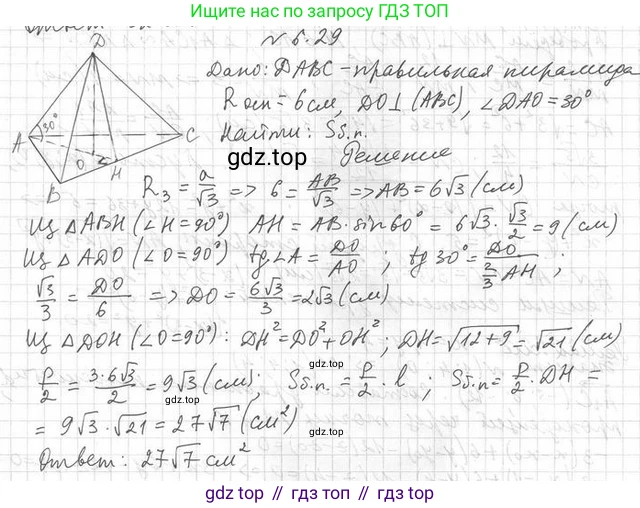 Ищите нас по запросу ГДЗ ТОП
№ 6.29
Дано: DABC - правильная пирамида
Rоп = 6 см, DO⊥(ABC), ∠DAO = 30°
Найти: Sб.п.
gdz.top
Решение
D
30°
A
C
O
B
H
R₃ = a/√3 => 6 = AB/√3 => AB = 6√3 (см)
Из △ABH (∠H = 90°) AH = AB·sin60° = 6√3·√3/2 = 9 (см)
Из △ADO (∠O = 90°) tg∠A = DO/AO ; tg30° = DO/(2/3 AH) ;
√3/3 = DO/6 => DO = 6√3/3 = 2√3 (см)
Из △DOH (∠O = 90°): DH² = DO² + OH² ; DH = √(12+9) = √21 (см)
P/2 = 3·6√3/2 = 9√3 (см); Sб.п. = P/2 · l ; Sб.п. = P/2 · DH =
= 9√3·√21 = 27√7 (см²)
gdz.top
Ответ: 27√7 см²
gdz.top // гдз.топ // gdz.top // гдз.топ